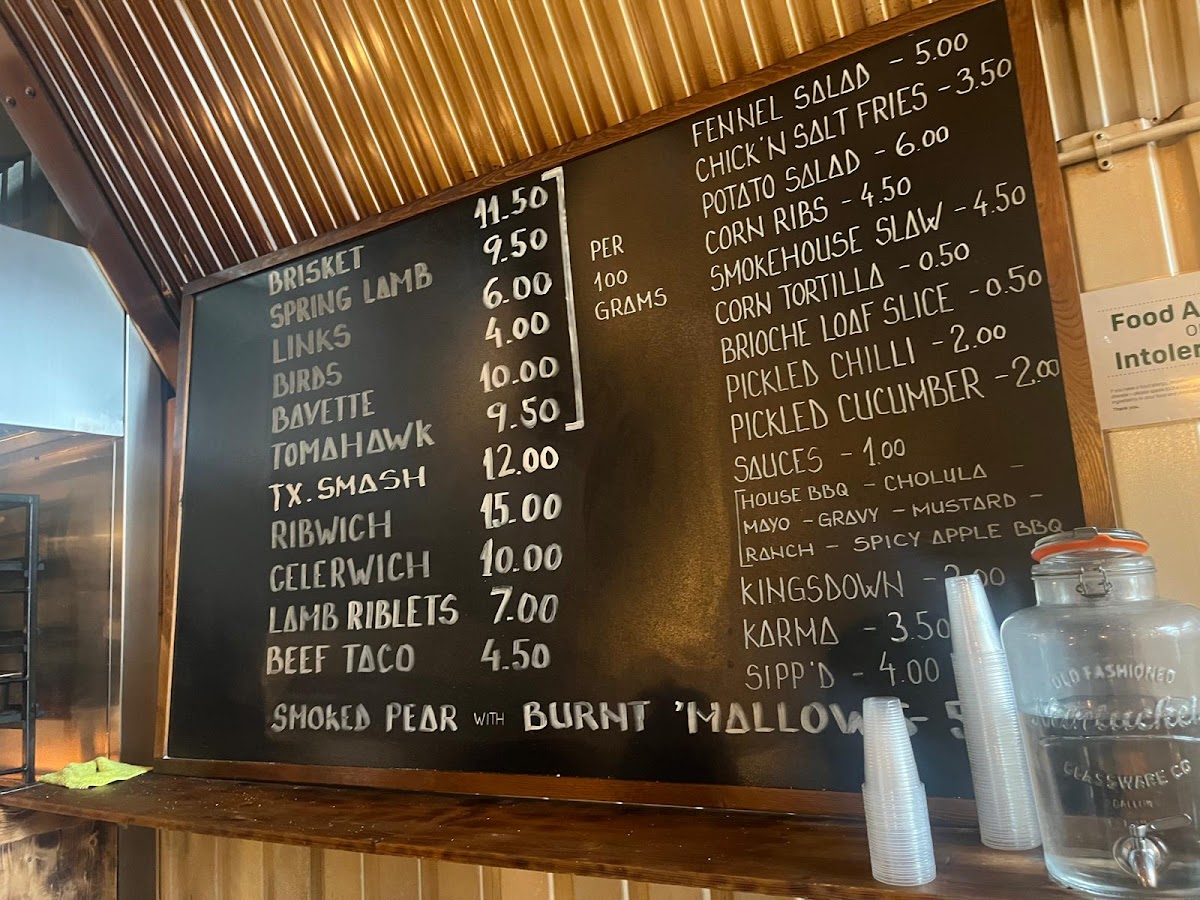 BRISKET 11.50
SPRING LAMB 9.50
LINKS 6.00
BIRDS 4.00
BAVETTE 10.00
TOMAHAWK 9.50
PER
100
GRAMS
TX. SMASH 12.00
RIBWICH 15.00
CELERWICH 10.00
LAMB RIBLETS 7.00
BEEF TACO 4.50
SMOKED PEAR WITH BURNT 'MALLOWS -
FENNEL SALAD - 5.00
CHICK'N SALT FRIES - 3.50
POTATO SALAD - 6.00
CORN RIBS - 4.50
SMOKEHOUSE SLAW - 4.50
CORN TORTILLA - 0.50
BRIOCHE LOAF SLICE - 0.50
PICKLED CHILLI - 2.00
PICKLED CUCUMBER - 2.00
SAUCES - 1.00
HOUSE BBQ - CHOLULA -
MAYO - GRAVY - MUSTARD -
RANCH - SPICY APPLE BBQ
KINGSDOWN -
KARMA - 3.50
SIPP'D - 4.00
Food A
O
Intoler
Thank you.
OLD FASHIONED
GLASSWARE CO
GALLON